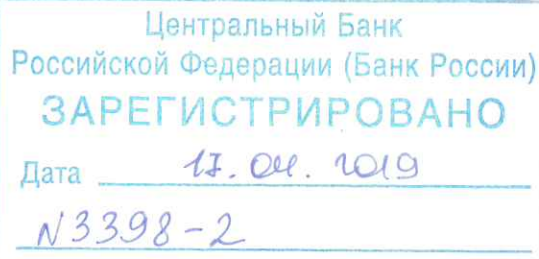 Центральный Банк
Российской Федерации (Банк России)
ЗАРЕГИСТРИРОВАНО
Дата 17.04.2019
N3398-2